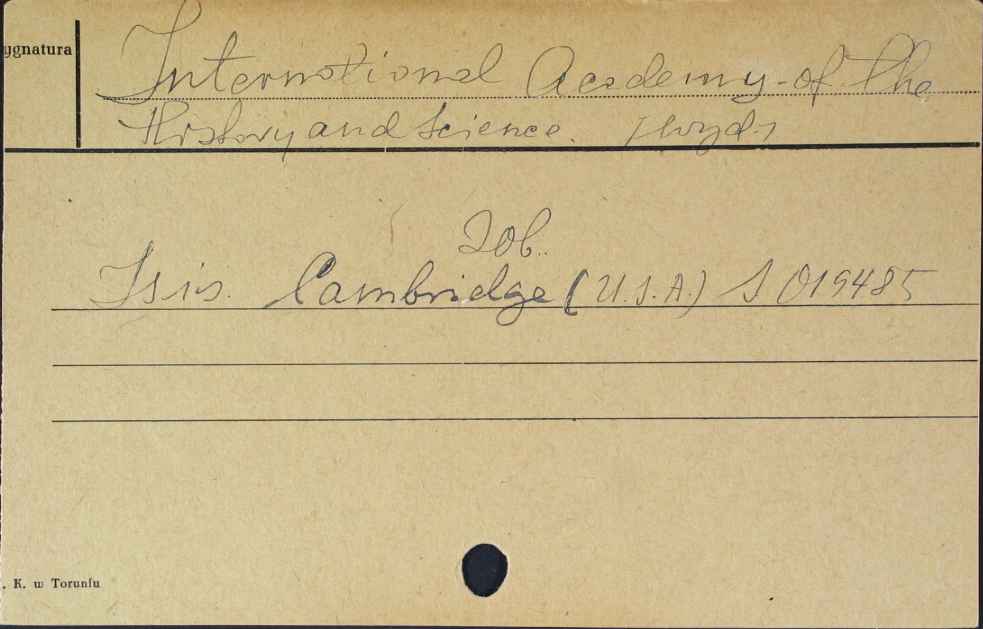 ygnatura
International Academy of the
History and Science. (wyd.)
Zob.
Isis. Cambridge (U.S.A.) S 019485
. K. w Toruniu